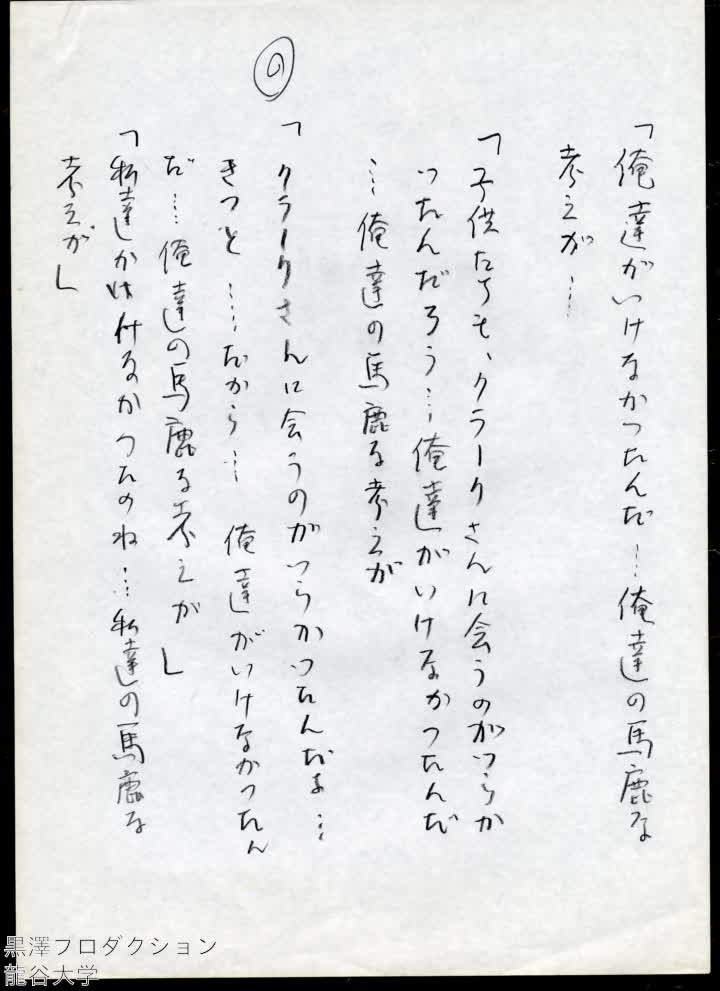 の
「俺達がいけなかつたんだ…俺達の馬鹿な
考えが…
「子供たちも、クラークさんに会うのがつらか
つたんだろう…俺達がいけなかつたんだ
…俺達の馬鹿な考えが
「クラークさんに会うのがつらかつたんだよ…
きつと……だから…俺達がいけなかつたん
だ…俺達の馬鹿な考えが」
「私達がいけなかつたのね…私達の馬鹿な
考えが」
黒澤プロダクション
龍谷大学